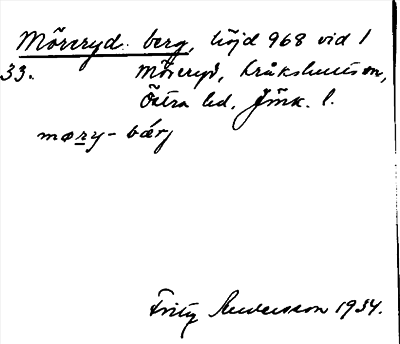 Möreryd berg, höjd 968 vid 1
33. Möreryd, Bråkshultson,
Östra hd, Jönk. l.
mœry - bærj
Fritz Andersson 1934.